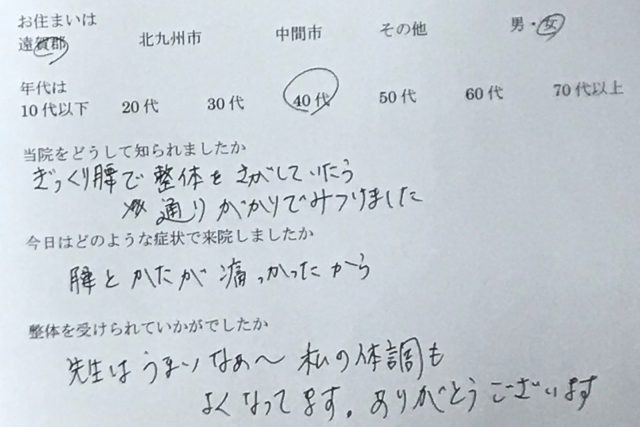 お住まいは 男・女
遠賀郡 北九州市 中間市 その他
年代は
10代以下 20代 30代 40代 50代 60代 70代以上
当院をどうして知られましたか
ぎっくり腰で整体をさがしていたら
通りがかりでみつけました
今日はどのような症状で来院しましたか
腰とかたが痛っかったから
整体を受けられていかがでしたか
先生はうまいなぁ〜 私の体調も
よくなってます。ありがとうございます